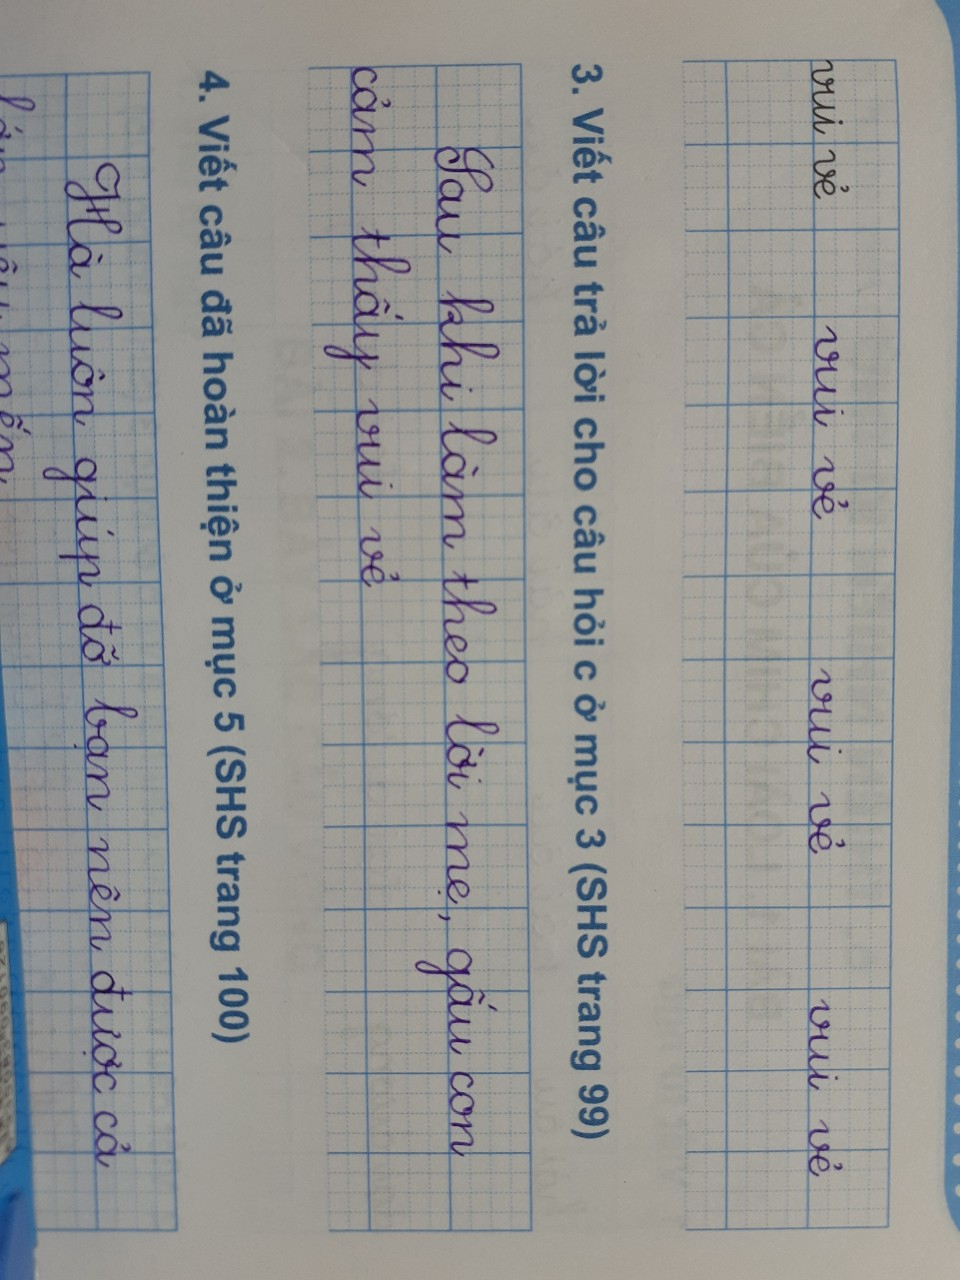 vui vẻ vui vẻ vui vẻ vui vẻ
3. Viết câu trả lời cho câu hỏi c ở mục 3 (SHS trang 99)
Sau khi làm theo lời mẹ, gấu con
cảm thấy vui vẻ
4. Viết câu đã hoàn thiện ở mục 5 (SHS trang 100)
Hà luôn giúp đỡ bạn nên được cả
lớp yêu mến